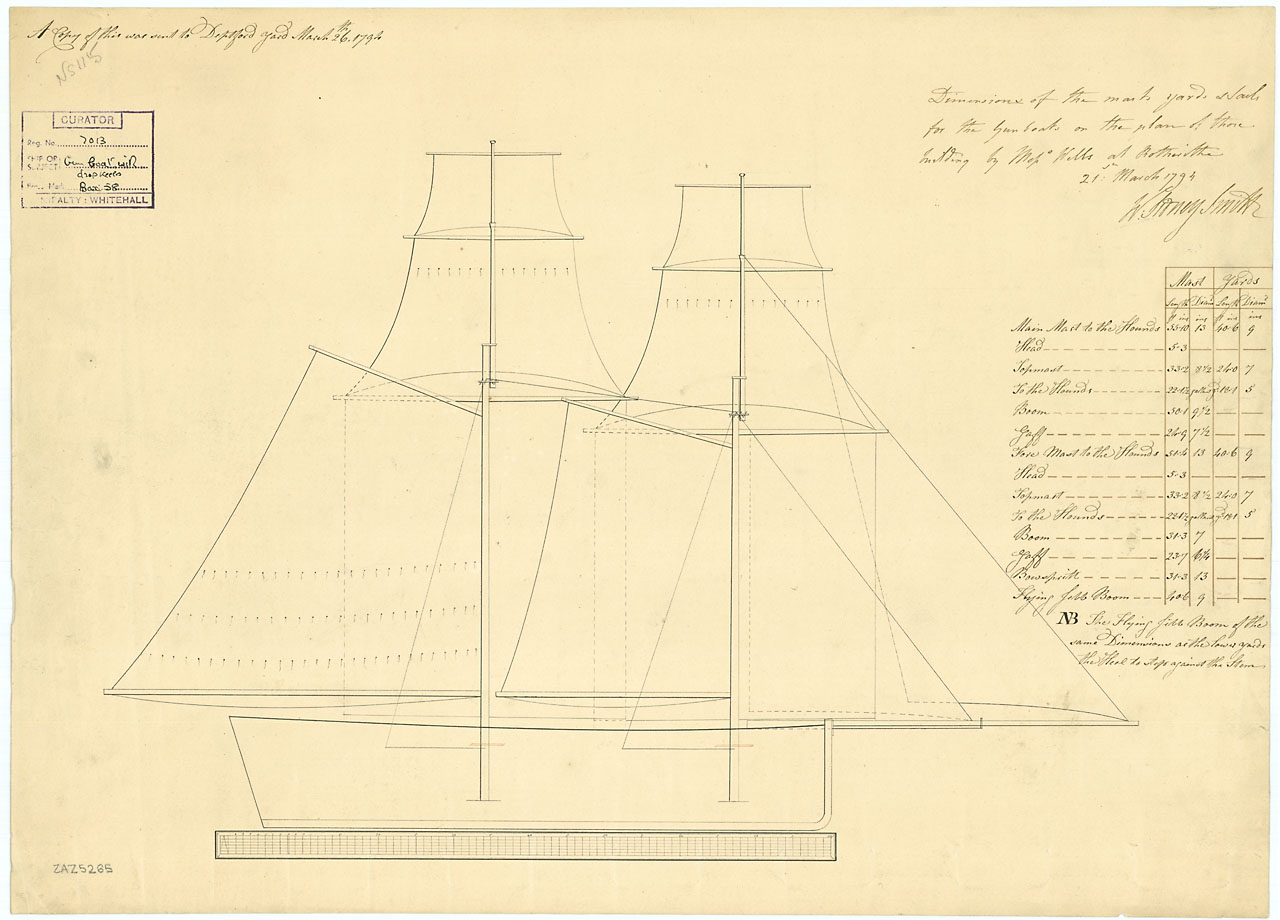 A Copy of this was sent to Deptford Yard March 26th. 1794
NS 115
CURATOR
Reg. No. 7013
SHIP OR SUBJECT: Gun Boat with
drop keels
Box 58
ALTY: WHITEHALL
Dimensions of the masts yards & Sails
for the Gunboats on the plan of those
building by Messrs Wells at Rotherithe
21st March 1794
W. Sidney Smith
Mast Yards
Length Diamr Length Diamr
ft ins ins ft ins ins
Main Mast to the Hounds 55-10 13 40-6 9
Head 5-3
Topmast 33-2 8½ 24-0 7
To the Hounds 22-1½ 5
Boom 50-1 9½
Gaff 24-9 7½
Fore Mast to the Hounds 51-4 13 40-6 9
Head 5-3
Topmast 33-2 8½ 24-0 7
To the Hounds 22-1½ 5
Boom 31-3 7
Gaff 23-7 6¼
Bowspritt 31-3 13
Flying Jibb Boom 40-6 9
NB The Flying Jibb Boom of the
same Dimensions as the lower yards
the Heel to step against the Stem
ZAZ5265